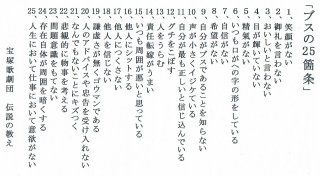 「ブスの25箇条」
1. 笑顔がない
2. お礼を言わない
3. おいしいと言わない
4. 目が輝いていない
5. 精気がない
6. いつも口がへの字の形をしている
7. 自信がない
8. 希望がない
9. 自分がブスであることを知らない
10. 声が小さくイジケている
11. 自分が最も正しいと信じ込んでいる
12. グチをこぼす
13. 人をうらむ
14. 責任転嫁がうまい
15. いつも周囲が悪いと思っている
16. 他人にシットする
17. 他人につくさない
18. 他人を信じない
19. 謙虚さが無くゴウマンである
20. 人のアドバイスや忠告を受け入れない
21. なんでもないことにキズつく
22. 悲観的に物事を考える
23. 問題意識をもてない
24. 存在自体が周囲を暗くする
25. 人生においても仕事においても意欲がない
宝塚歌劇団 伝説の教え